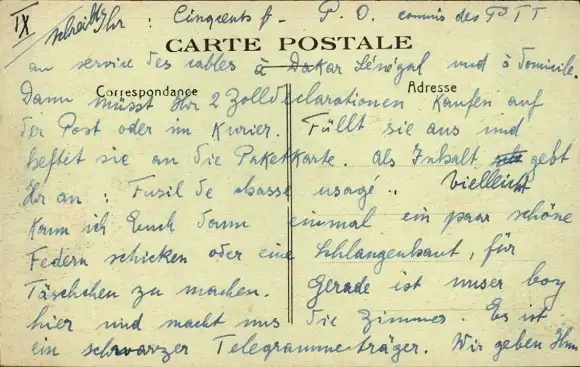 IX
schreibt Ihr : Cinqcents f - P. O. commis des PTT
CARTE POSTALE
au service des cables à Dakar Sénégal und à domicile.
Correspondance
Adresse
Dann müsst Ihr 2 Zolldeclarationen kaufen auf
der Post oder im Kurier. Füllt sie aus und
heftet sie an die Paketkarte. Als Inhalt gebt
Ihr an : Fusil de chasse usagé. Vielleicht
kann ich Euch dann einmal ein paar schöne
Federn schicken oder eine Schlangenhaut, für
Täschchen zu machen. Gerade ist unser boy
hier und macht uns die Zimmer. Es ist
ein schwarzer Telegrammeträger. Wir geben Ihm